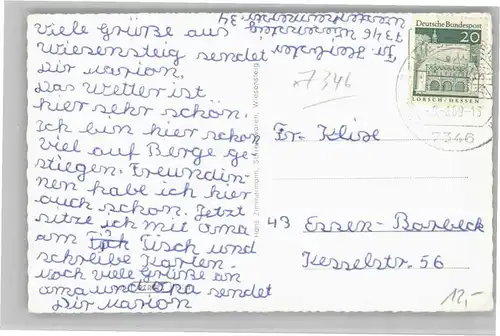 Viele Grüße aus
Wiesensteig sendet
Dir Marion.
Das Wetter ist
hier sehr schön.
Ich bin hier schon
viel auf Berge ge-
stiegen. Freundin-
nen habe ich hier
auch schon. Jetzt
sitze ich mit Oma
am Tisch und
schreibe Karten.
Noch viele Grüße an
Oma und Opa sendet
Dir Marion
7346 Wiesensteig
34
*7346
Deutsche Bundespost
20
LORSCH/HESSEN
7346
Hans Zimmermann, Wiesensteig
Fr. Klise
43 Essen-Borbeck
Kesselstr. 56
12,-